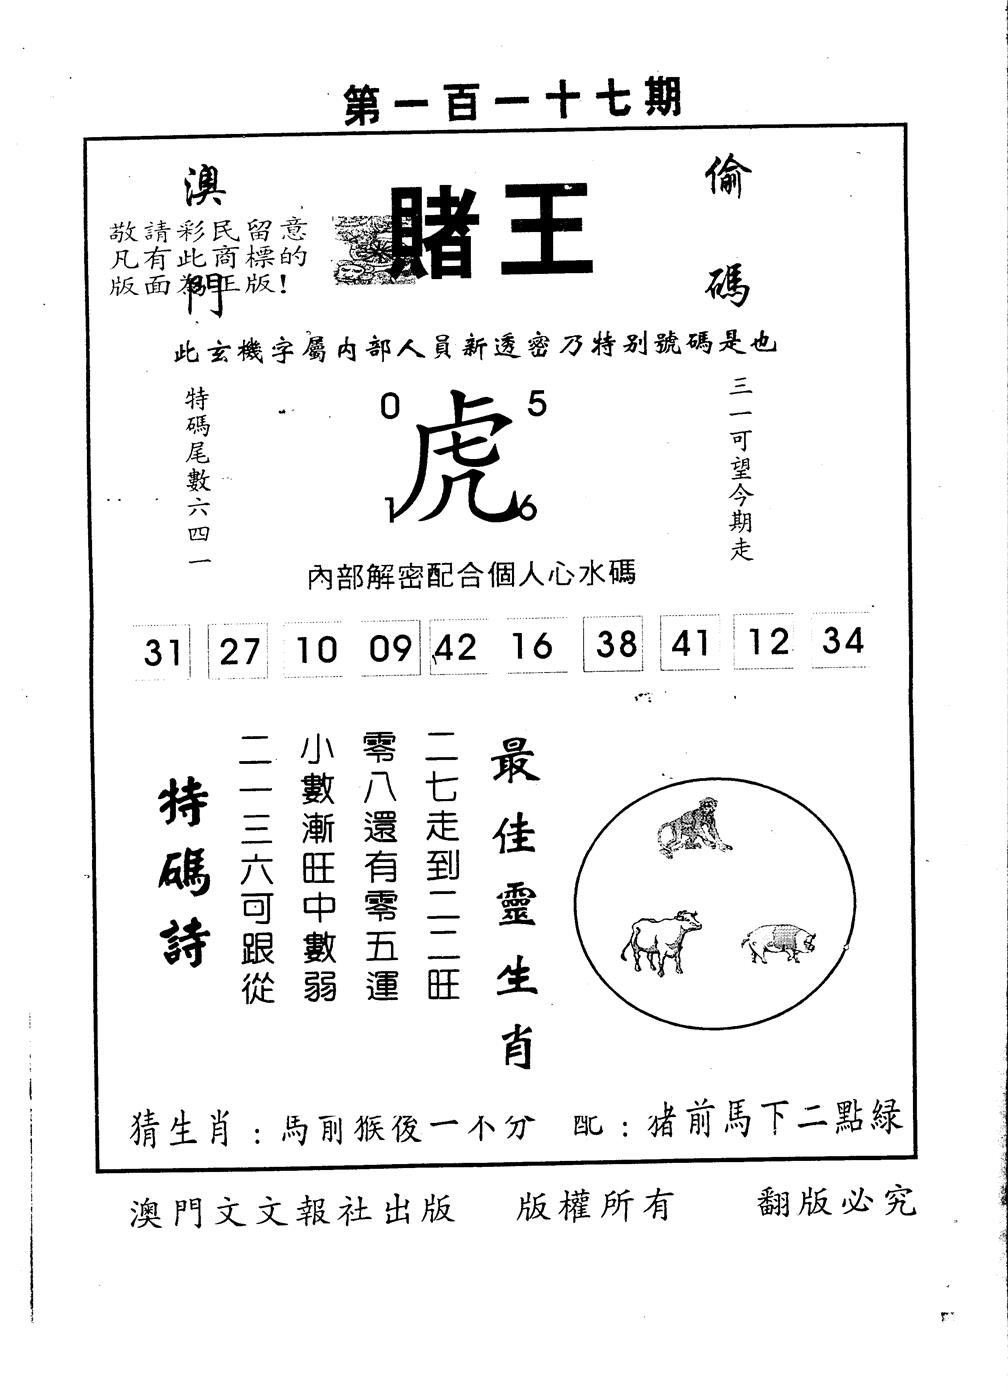 第一百一十七期
澳門
賭王
偷碼
敬請彩民留意
凡有此商標的
版面為正版!
此玄機字屬内部人員新透密乃特别號碼是也
特碼尾數六四一
0 5
虎
1 6
三一可望今期走
內部解密配合個人心水碼
31 27 10 09 42 16 38 41 12 34
最佳靈生肖
二七走到二二旺
零八還有零五運
小數漸旺中數弱
二一三六可跟從
特碼詩
猜生肖:馬前猴後一不分 配:猪前馬下二點緑
澳門文文報社出版 版權所有 翻版必究